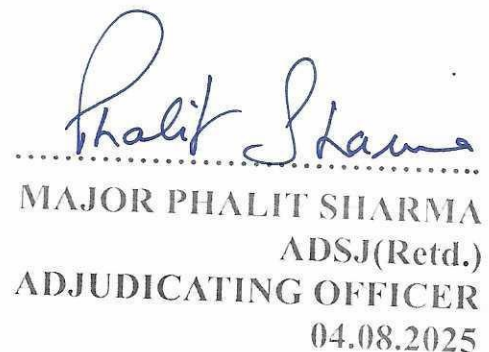 Phalit Sharma
MAJOR PHALIT SHARMA
ADSJ(Retd.)
ADJUDICATING OFFICER
04.08.2025